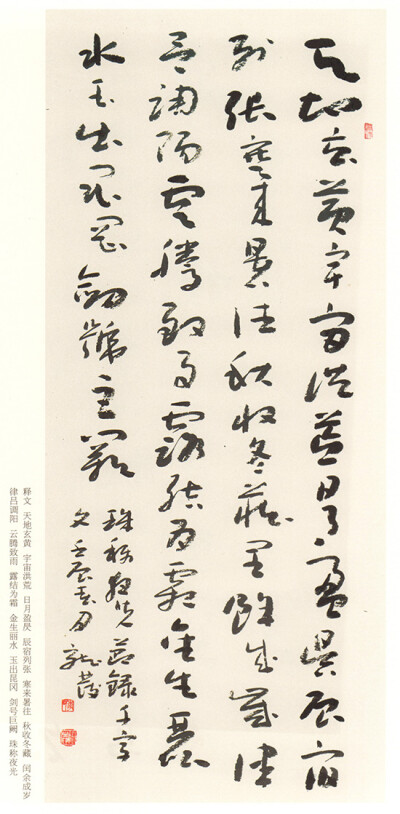 天地玄黃宇宙洪荒日月盈昃辰宿
列張寒來暑往秋收冬藏閏餘成歲律
呂調陽雲騰致雨露結為霜金生麗
水玉出崑岡劍號巨闕
珠稱夜光節錄千字
文壬辰春月
释文 天地玄黄 宇宙洪荒 日月盈昃 辰宿列张 寒来暑往 秋收冬藏 闰余成岁
律吕调阳 云腾致雨 露结为霜 金生丽水 玉出昆冈 剑号巨阙 珠称夜光